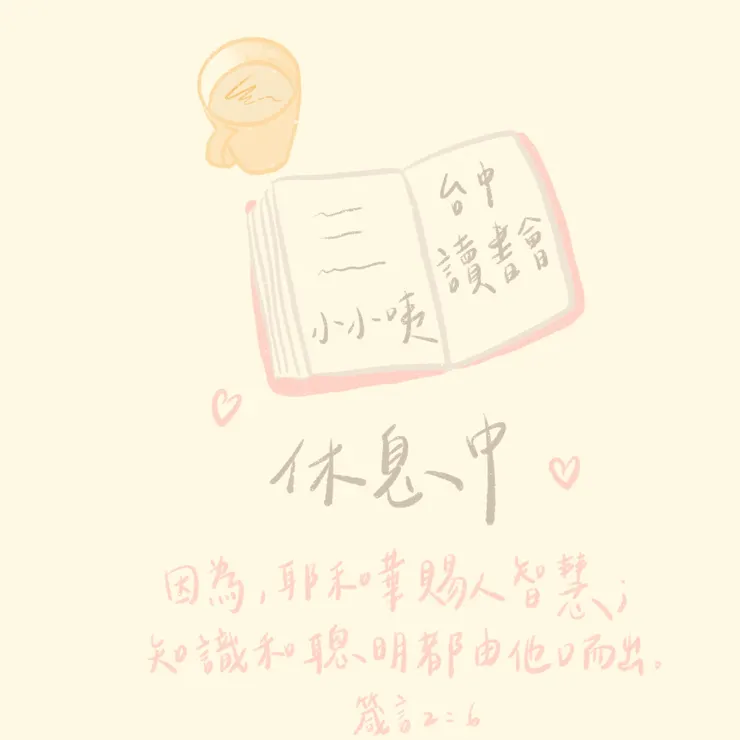 小小咦
台中
讀書會
休息中
因為,耶和華賜人智慧;
知識和聰明都由他口而出。
箴言2:6